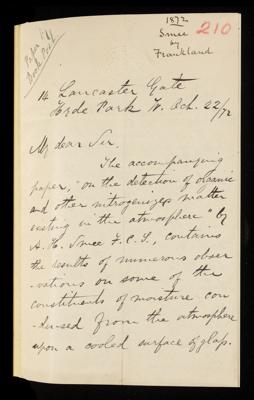 1872
210
Smee
by
Frankland
14 Lancaster Gate
Hyde Park W. Oct. 22/72
My dear Sir,
The accompanying
paper, "on the detection of organic
and other nitrogenized matter
existing in the atmosphere" by
A. H. Smee F.C.S., contains
the results of numerous obser
-vations on some of the
constituents of moisture con
-densed from the atmosphere
upon a cooled surface of glass.